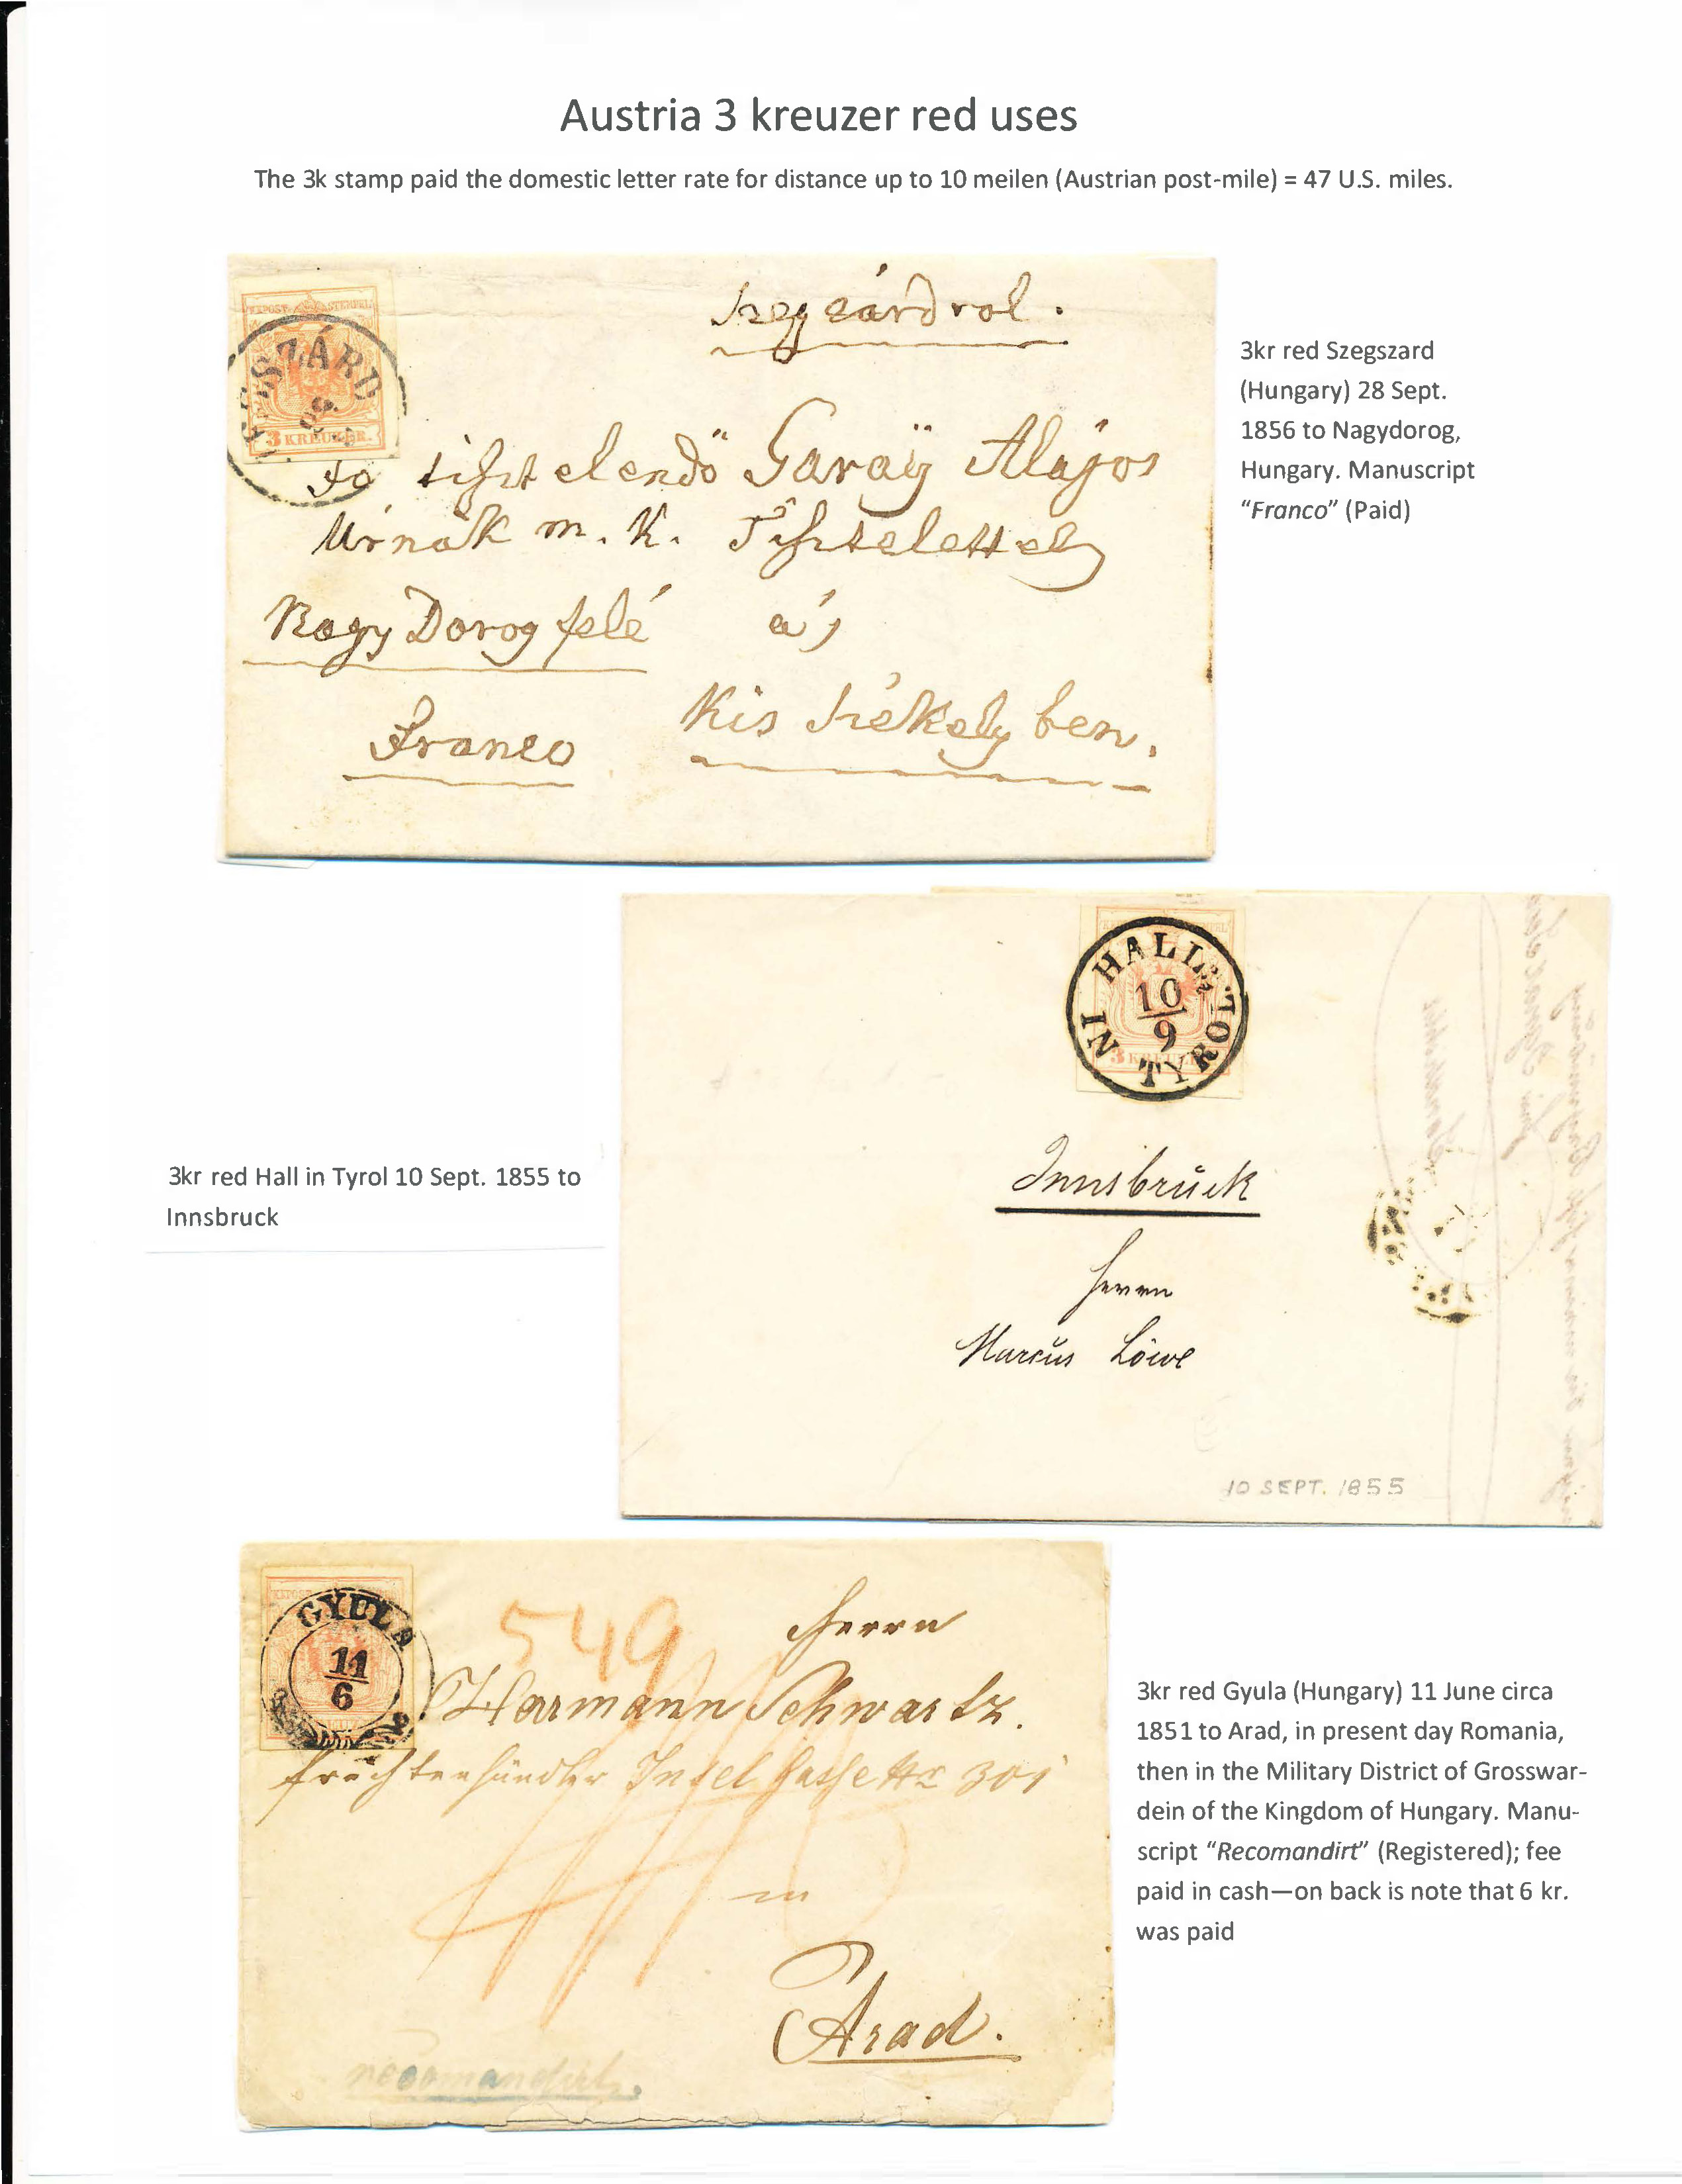 Austria 3 kreuzer red uses
The 3k stamp paid the domestic letter rate for distance up to 10 meilen (Austrian post-mile) = 47 U.S. miles.
KKPOST-STEMPEL
SZÁRD
3 KREUZER.
Szegszárdrol.
Garaÿ Alajos
Úrnak m. k. Tisztelettel
Nagy Dorog felé
Franco
Kis Székely ben.
3kr red Szegszard
(Hungary) 28 Sept.
1856 to Nagydorog,
Hungary. Manuscript
“Franco” (Paid)
HALL
10
9
IN TYROL
3 KREUZER
Innsbruck
Herrn
Marcus Löwe
10 SEPT. 1855
3kr red Hall in Tyrol 10 Sept. 1855 to
Innsbruck
GYULA
11
6
549
Herrn
Harmann Schwartz.
Früchtenhändler Insel Gasse Nr 301
in
Arad.
recomandirt.
3kr red Gyula (Hungary) 11 June circa
1851 to Arad, in present day Romania,
then in the Military District of Grosswar-
dein of the Kingdom of Hungary. Manu-
script “Recomandirt” (Registered); fee
paid in cash—on back is note that 6 kr.
was paid